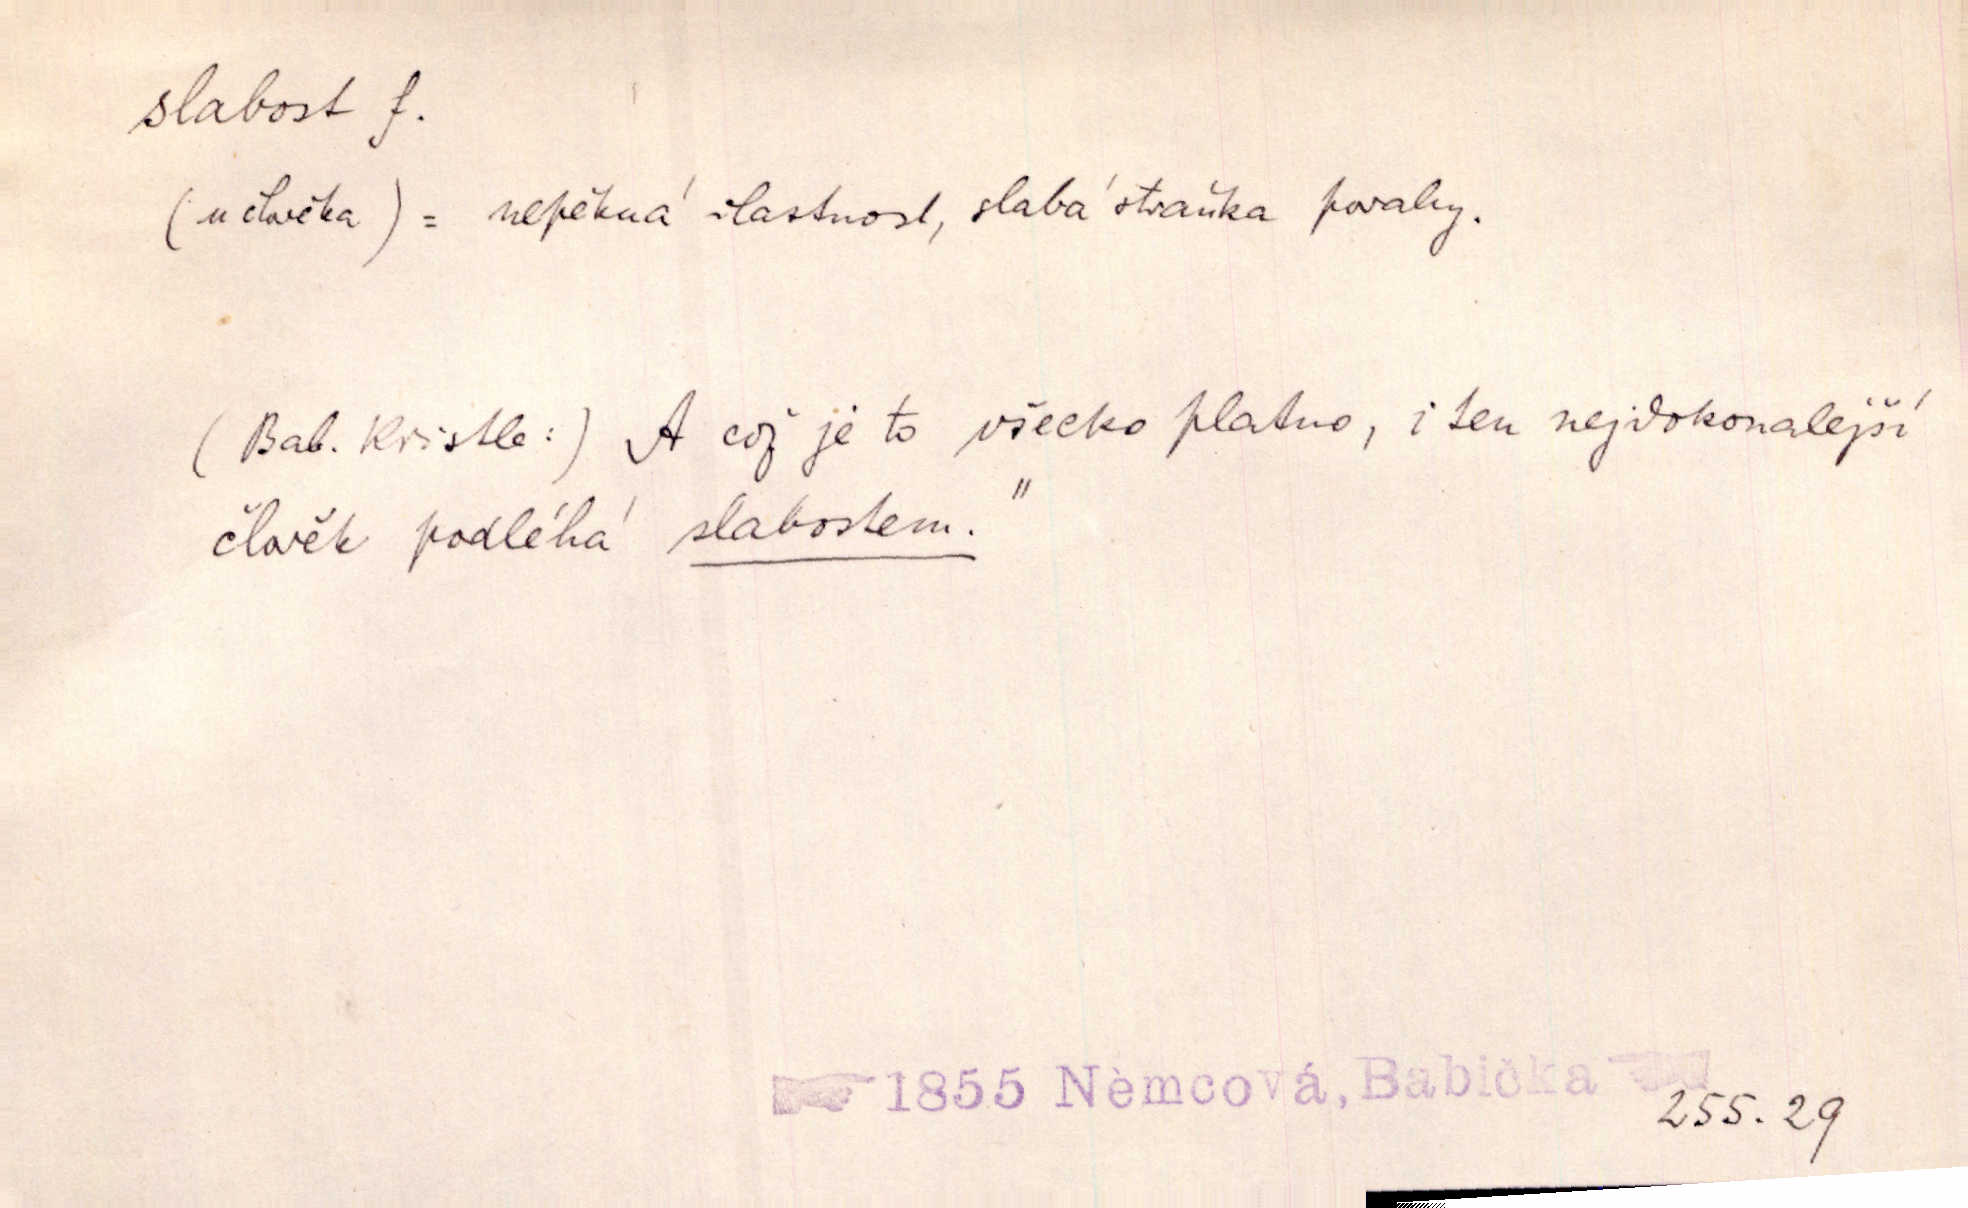 slabost f.
(u člověka) = nepěkná vlastnost, slabá stránka povahy.
(Bab. Kristle:) A což je to všecko platno, i ten nejdokonalejší
člověk podléhá slabostem."
1855 Němcová, Babička
255. 29